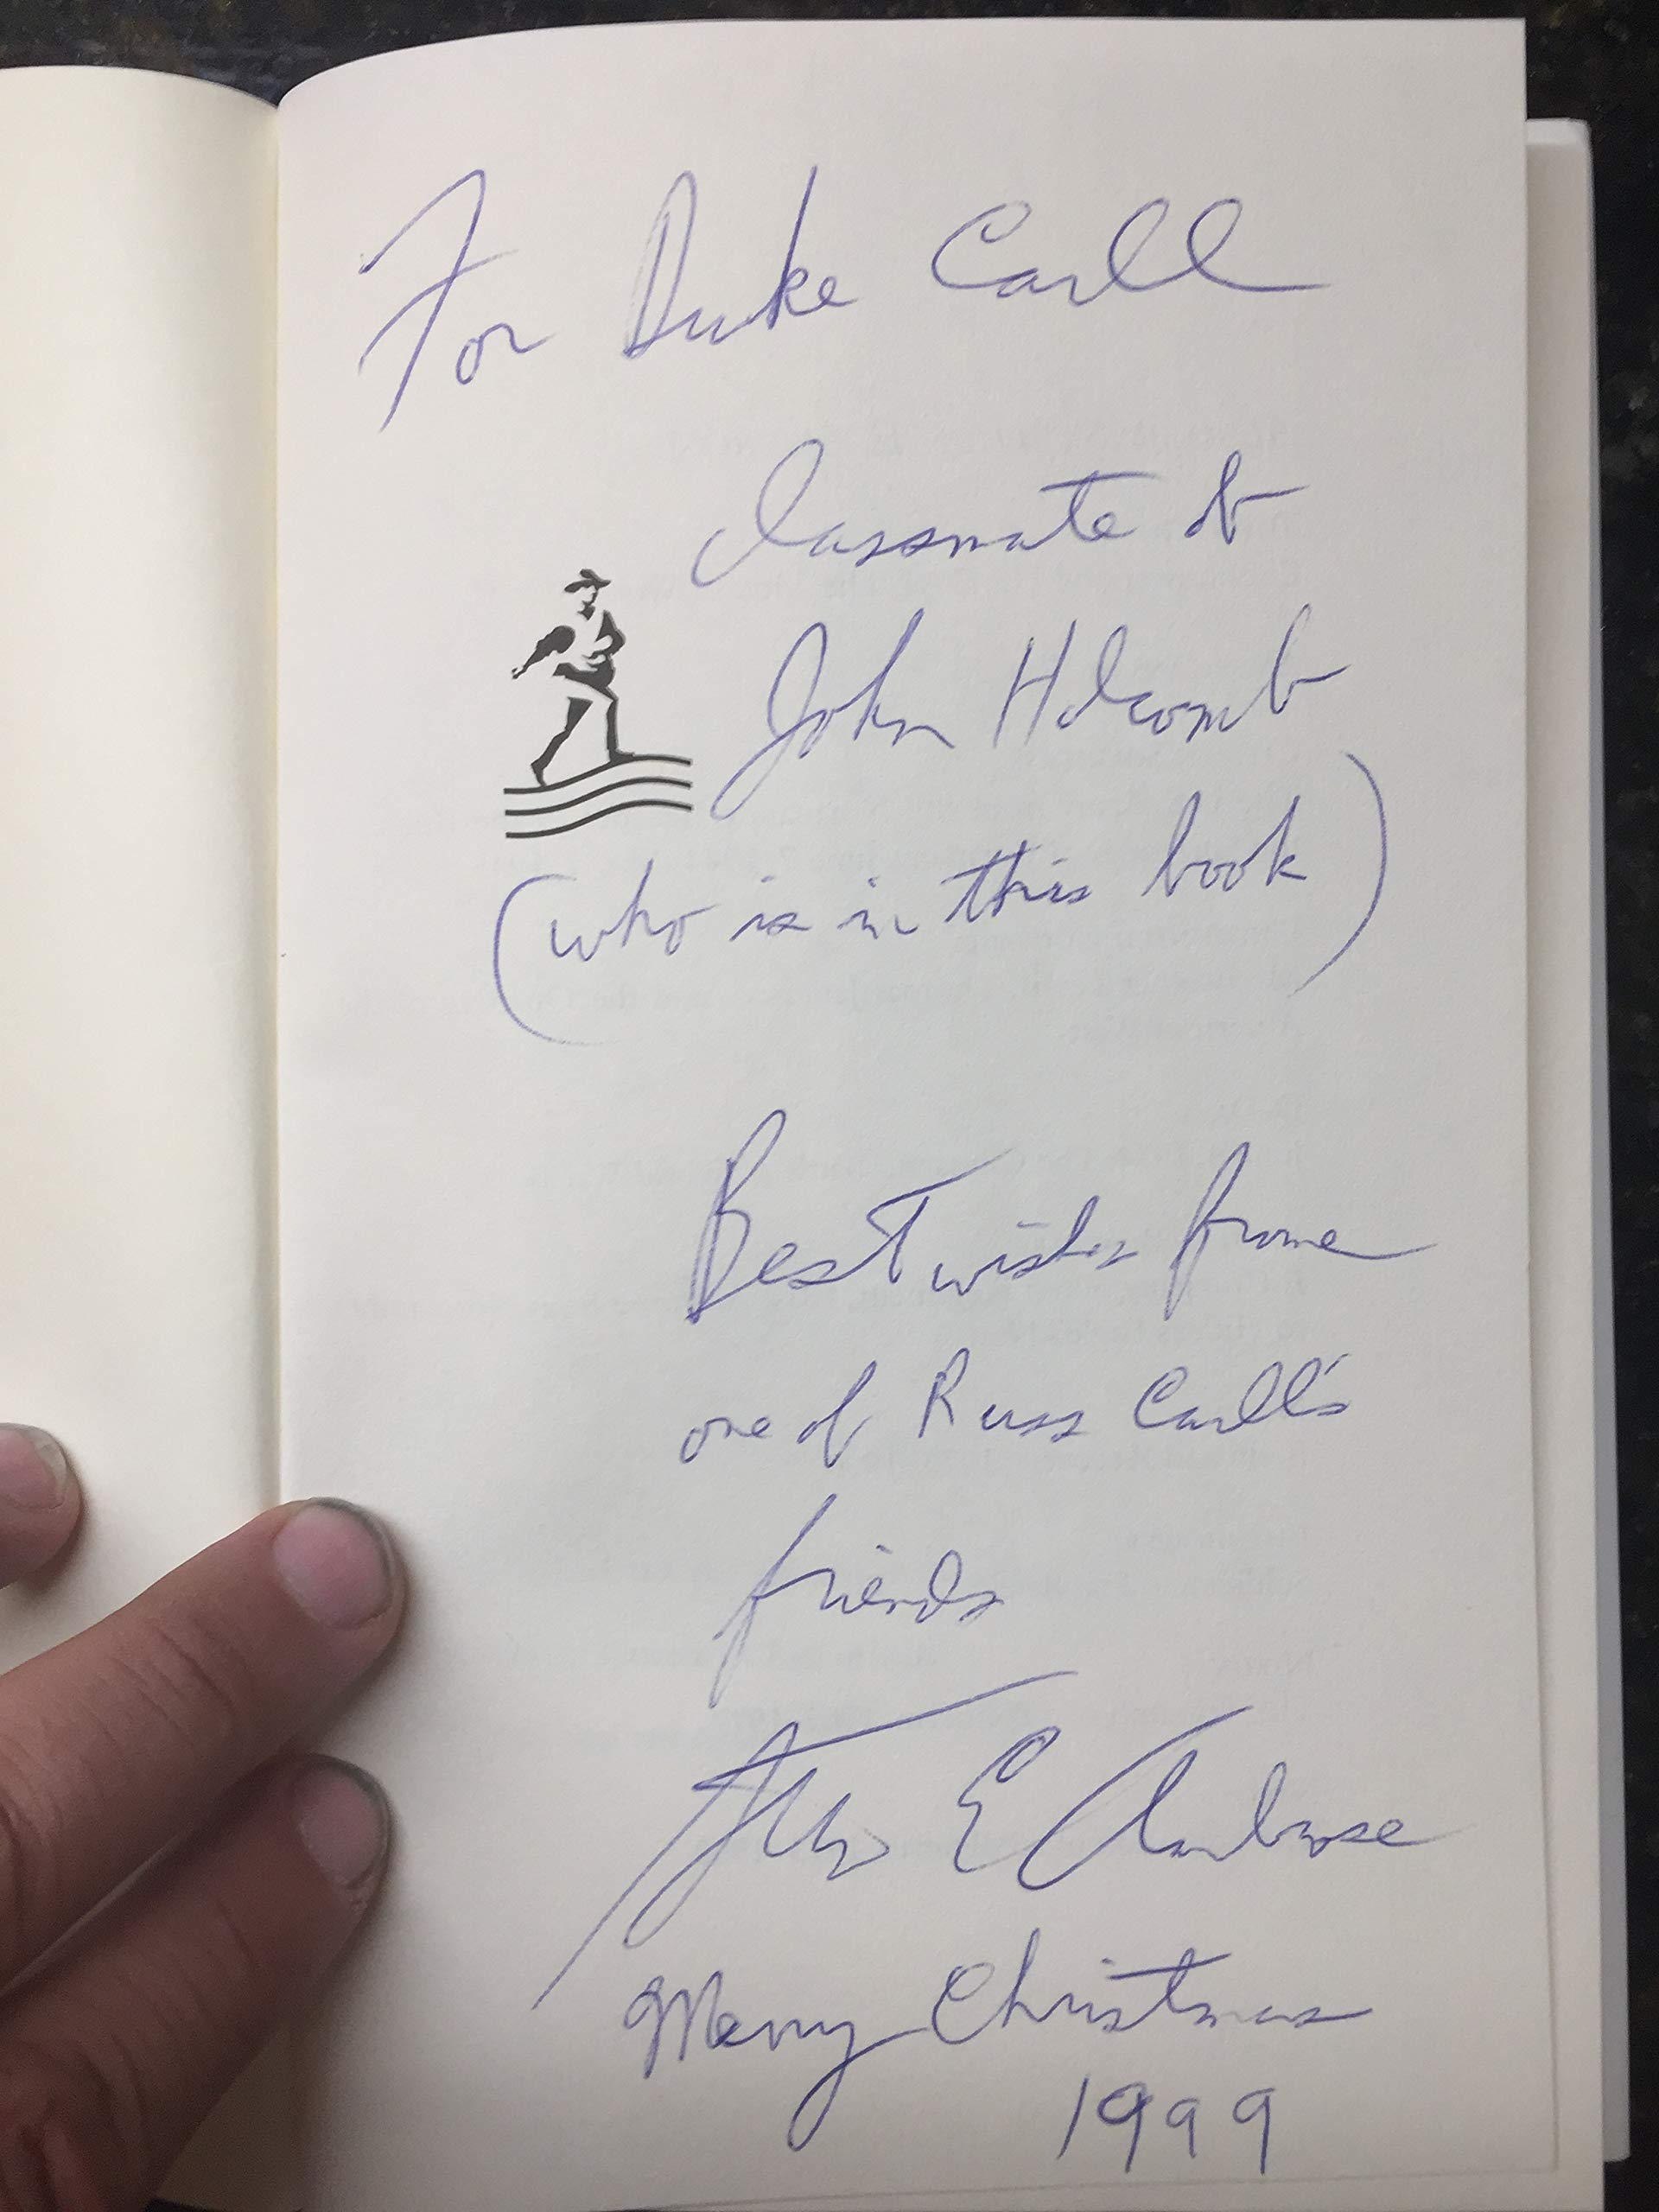 For Duke Carll
classmate of
John Holcomb
(who is in this book)
Best wishes from
one of Russ Carll's
friends
Stephen E Ambrose
Merry Christmas
1999